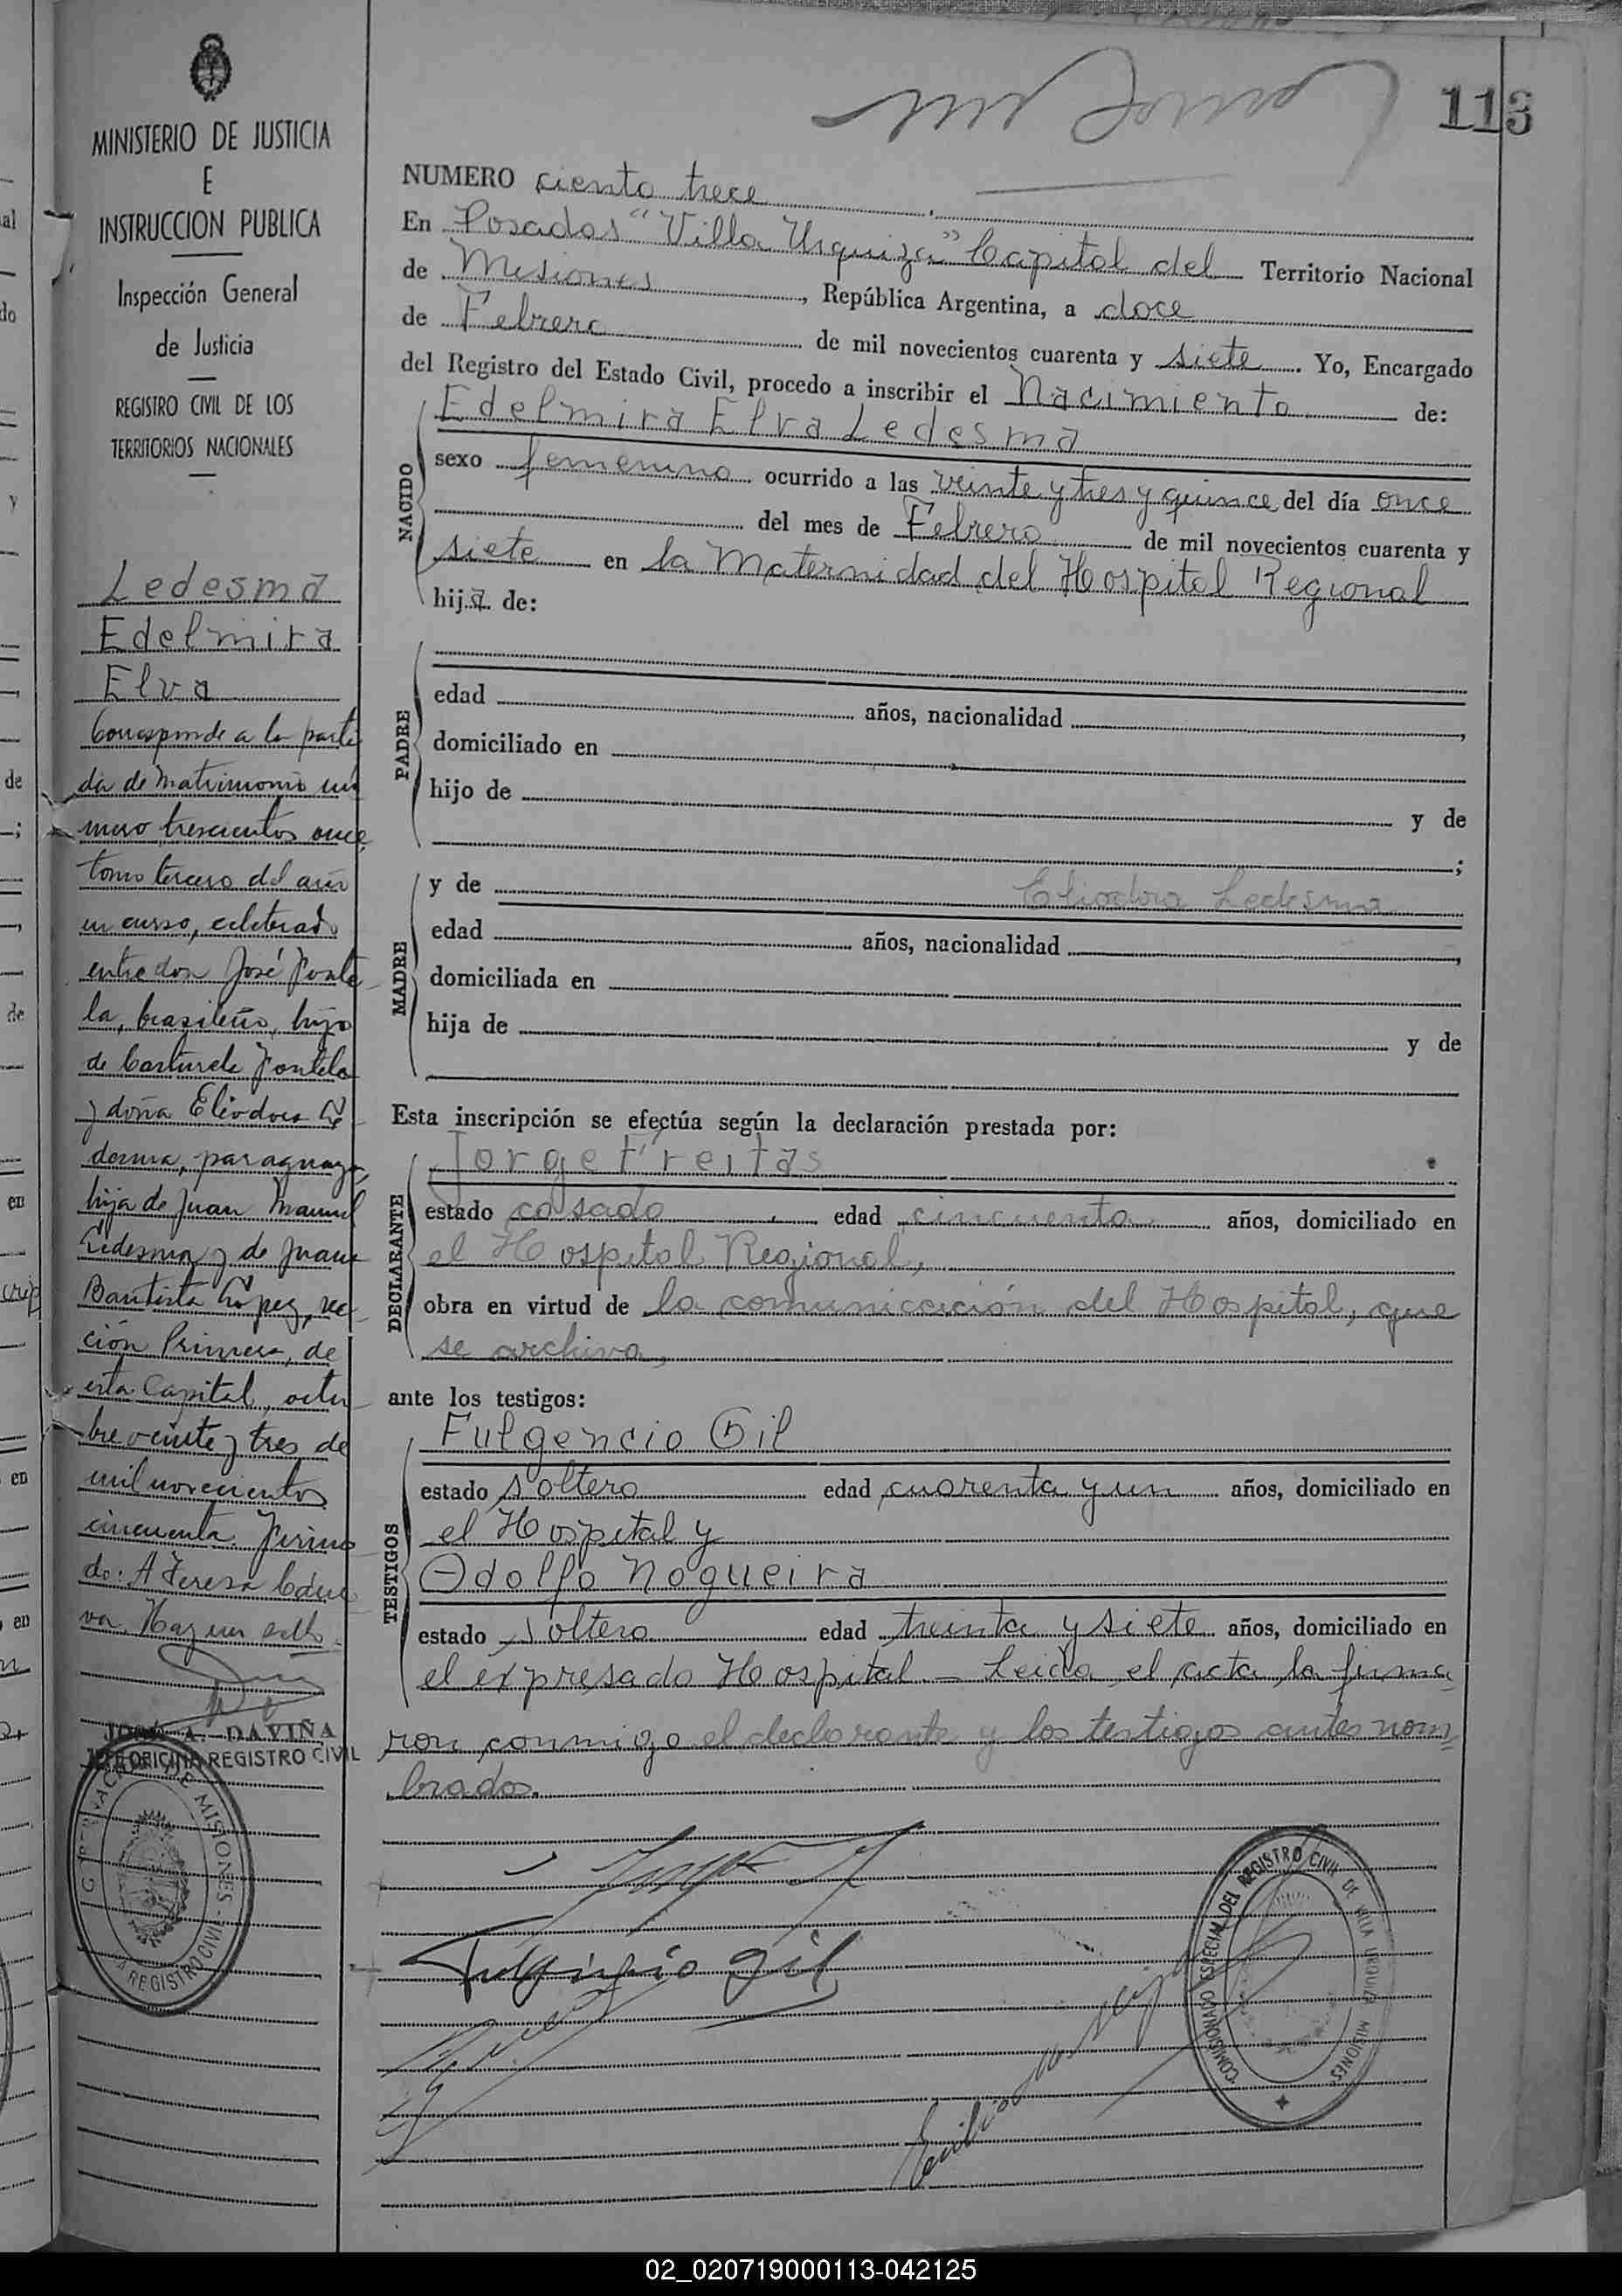 113
MINISTERIO DE JUSTICIA
E
INSTRUCCION PUBLICA
Inspección General
de Justicia
REGISTRO CIVIL DE LOS
TERRITORIOS NACIONALES
Ledesma
Edelmira
Elva
Corresponde a la parti
da de Matrimonio nú
mero trescientos once,
tomo tercero del año
en curso, celebrado
entre don José Fonte
la, brasileño, hijo
de Fontela
y doña Eliodora Le
desma, paraguaya,
hija de Juan Manuel
Ledesma y de Juana
Bautista López, sec
ción Primera, de
esta Capital, octu
bre veinte y tres de
mil novecientos
cincuenta. Firma
do: A Teresa
Hay un sello.
JOSÉ A. DAVIÑA
JEFE OFICINA REGISTRO CIVIL
GOBERNACION DE MISIONES - REGISTRO CIVIL
NUMERO ciento trece
En Posadas "Villa Urquiza" Capital del Territorio Nacional
de Misiones, República Argentina, a doce
de Febrero de mil novecientos cuarenta y siete. Yo, Encargado
del Registro del Estado Civil, procedo a inscribir el Nacimiento de:
NACIDO
Edelmira Elva Ledesma
sexo femenino ocurrido a las veinte y tres y quince del día once
del mes de Febrero de mil novecientos cuarenta y
siete en la Maternidad del Hospital Regional
hija de:
PADRE
edad años, nacionalidad ,
domiciliado en
hijo de y de
;
MADRE
y de Eliodora Ledesma
edad años, nacionalidad ,
domiciliada en
hija de y de
Esta inscripción se efectúa según la declaración prestada por:
DECLARANTE
Jorge Freitas
estado casado, edad cincuenta años, domiciliado en
el Hospital Regional,
obra en virtud de la comunicación del Hospital, que
se archiva,
ante los testigos:
TESTIGOS
Fulgencio Gil
estado soltero edad cuarenta y un años, domiciliado en
el Hospital y
Adolfo Nogueira
estado soltero edad treinta y siete años, domiciliado en
el expresado Hospital - Leida el acta, la firma
ron conmigo el declarante y los testigos antes nom
brados.
Fulgencio Gil
COMISIONADO ESPECIAL DEL REGISTRO CIVIL DE VILLA URQUIZA MISIONES
02_020719000113-042125